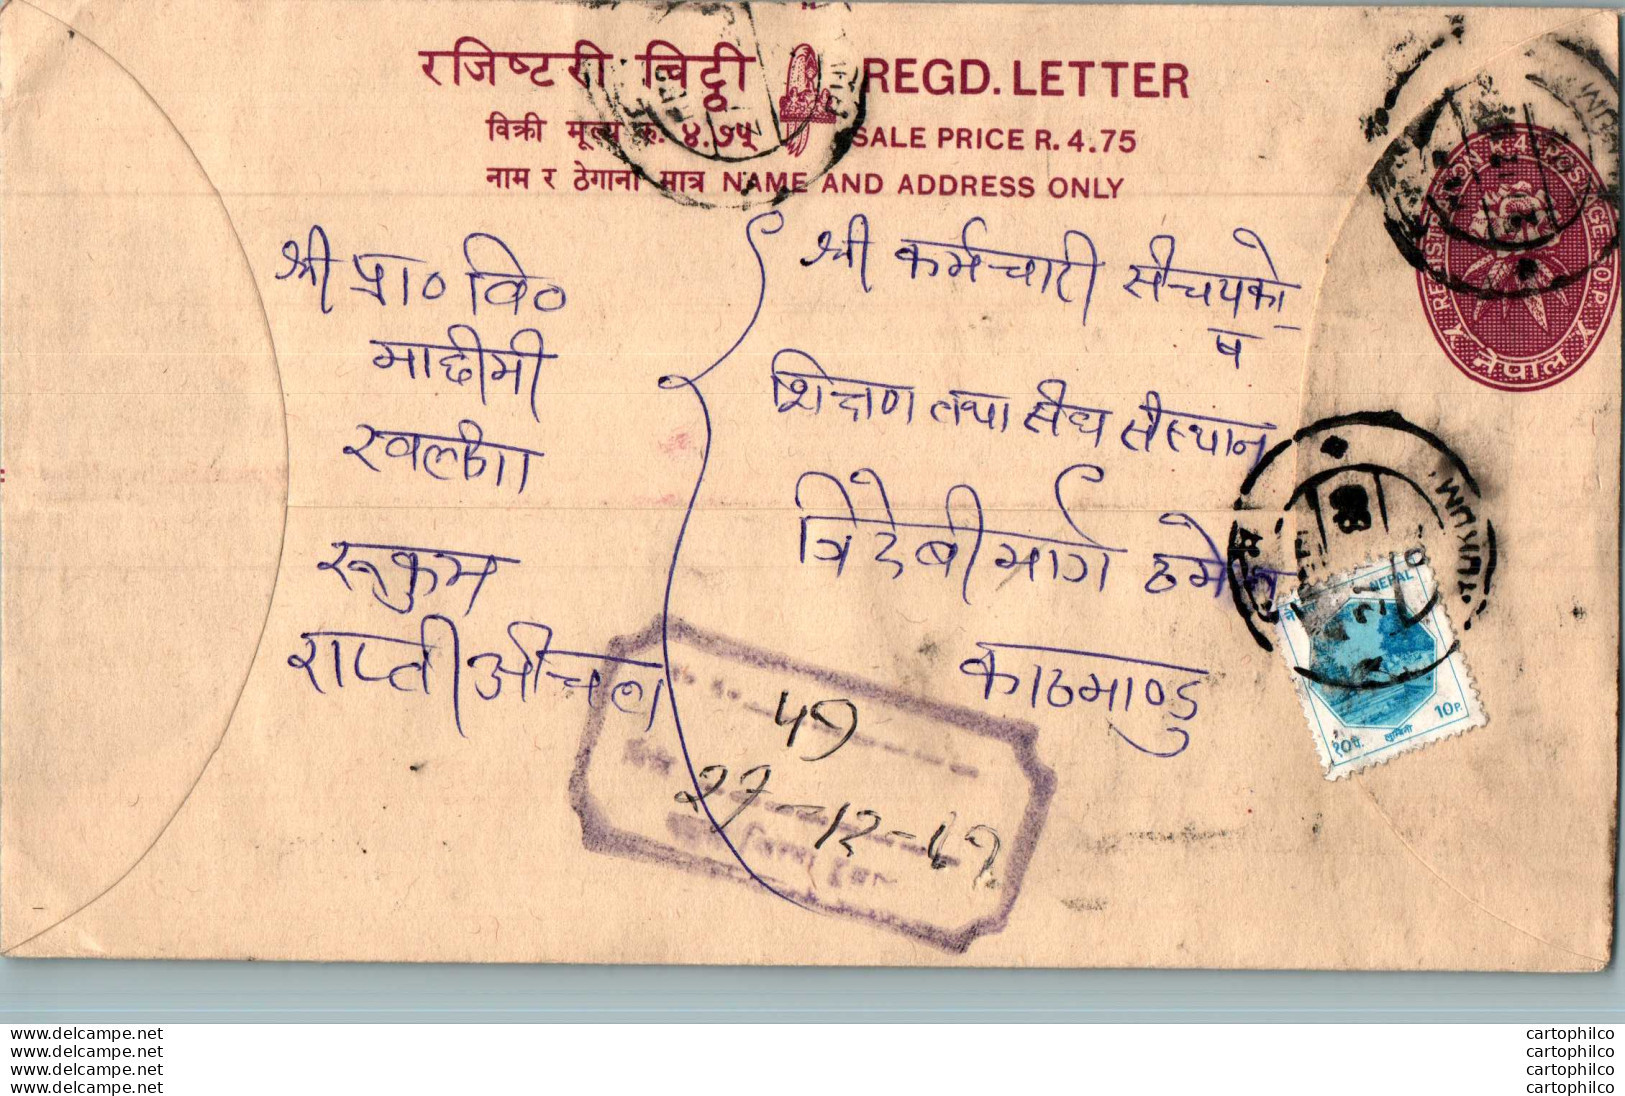 रजिष्टरी चिठ्ठी REGD. LETTER
विक्री मूल्य रु. ४.७५ SALE PRICE R. 4.75
नाम र ठेगाना मात्र NAME AND ADDRESS ONLY
REGISTRATION POSTAGE
नेपाल
श्री प्रा० वि०
रुकुम
राप्ती अंचल
श्री कर्मचारी संचयको
ष
शिक्षण तथा संघ संस्थान
त्रिदेबी मार्ग ठमेल
काठमाण्डु
RUKUM
NEPAL
१०पै. लुम्बिनी 10P.
49
27-12-49
www.delcampe.net
www.delcampe.net
www.delcampe.net
www.delcampe.net
cartophilco
cartophilco
cartophilco
cartophilco